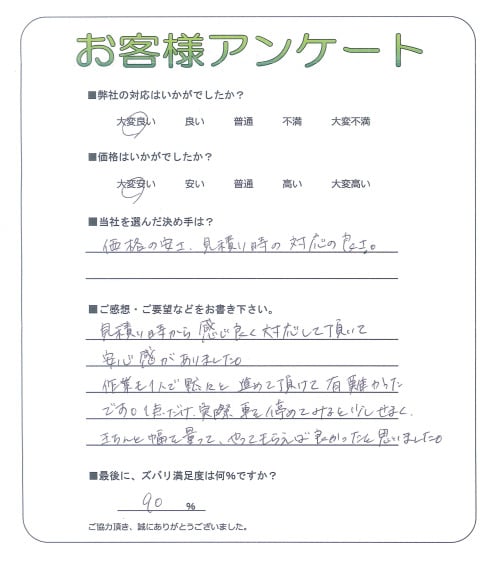 お客様アンケート
■弊社の対応はいかがでしたか？
大変良い 良い 普通 不満 大変不満
■価格はいかがでしたか？
大変安い 安い 普通 高い 大変高い
■当社を選んだ決め手は？
価格の安さ、見積り時の対応の良さ。
■ご感想・ご要望などをお書き下さい。
見積り時から感じ良く対応して頂いて
安心感がありました。
作業も1人で黙々と進めて頂けて有難かった
です。1点だけ、実際車を停めてみると少しせまく、
きちんと幅を量って、やってもらえば良かったと思いました。
■最後に、ズバリ満足度は何%ですか？
90 %
ご協力頂き、誠にありがとうございました。